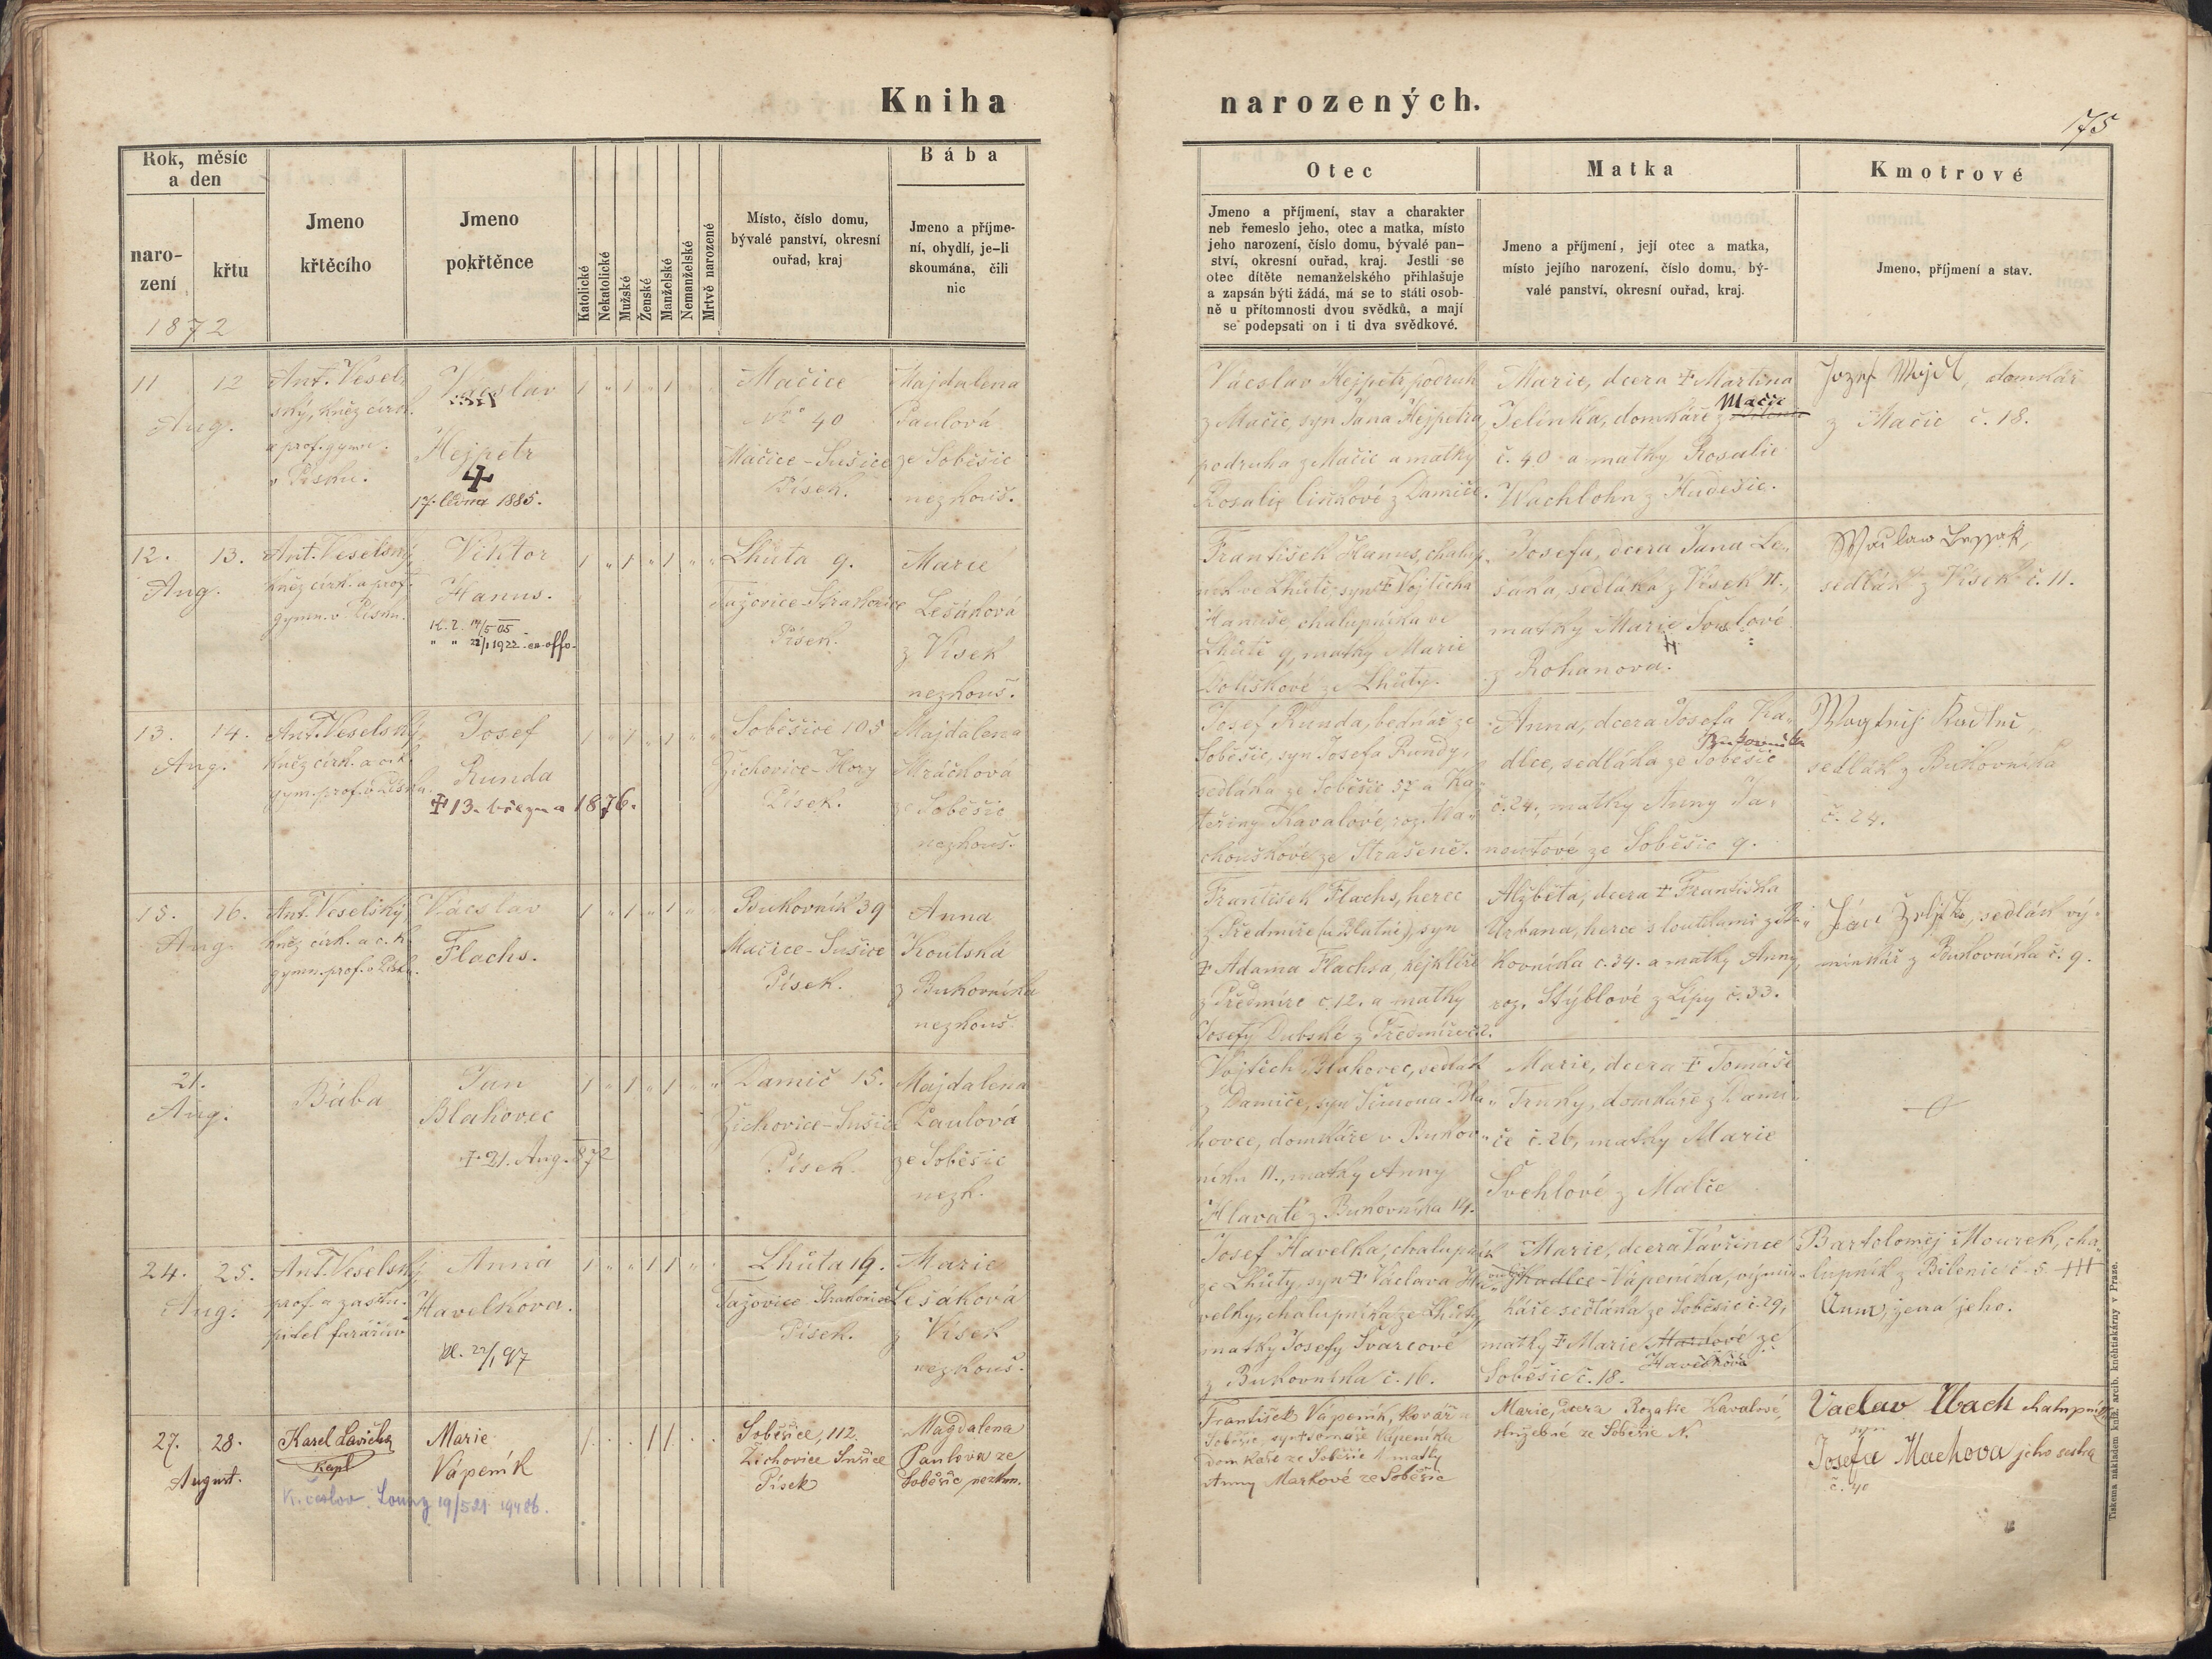 Kniha
narozených.
175
Rok, měsíc
a den
naro-
zení
křtu
1872
Jmeno
křtěcího
Jmeno
pokřtěnce
Katolické
Nekatolické
Mužské
Ženské
Manželské
Nemanželské
Mrtvě narozené
Místo, číslo domu,
bývalé panství, okresní
ouřad, kraj
Bába
Jmeno a příjme-
ní, obydlí, je-li
skoumána, čili
nic
Otec
Jmeno a příjmení, stav a charakter
neb řemeslo jeho, otec a matka, místo
jeho narození, číslo domu, bývalé pan-
ství, okresní ouřad, kraj. Jestli se
otec dítěte nemanželského přihlašuje
a zapsán býti žádá, má se to státi osob-
ně u přítomnosti dvou svědků, a mají
se podepsati on i ti dva svědkové.
Matka
Jmeno a příjmení, její otec a matka,
místo jejího narození, číslo domu, bý-
valé panství, okresní ouřad, kraj.
Kmotrové
Jmeno, příjmení a stav.
11 12
Aug.
Ant. Vesel-
ský, kněz círk.
a prof. gymn.
v Písku.
Vácslav
Hejpetr
17. ledna 1885.
1 " 1 " 1 " "
Mačice
No 40
Mačice-Sušice
Písek.
Majdalena
Paulová
ze Soběšic
nezkouš.
Vácslav Hejpetr, podruh
z Mačic, syn Jana Hejpetra,
podruha z Mačic a matky
Rosalie Ciškové z Damiče.
Marie, dcera † Martina
Jelínka, domkáře z Mačic
č. 40 a matky Rosalie
Wachlohn z Hudešic.
Jozef domkář
z Mačic č. 18.
12. 13.
Aug.
Ant. Veselský,
kněz círk. a prof.
gymn. v Písku.
Viktor
Hanus.
K. l. 14/5 05
" " 22/1 1922 - ex offo.
1 " 1 " 1 " "
Lhůta 9.
Tažovice-Strakonice
Písek.
Marie
Lešáková
z Vísek
nezkouš.
František Hanus, chalup-
ník ve Lhůtě, syn † Vojtěcha
Hanuše, chalupníka ve
Lhůtě 9, matky Marie
Boliškové ze Lhůty.
Josefa, dcera Jana Le-
šáka, sedláka z Vísek 11.,
matky Marie
z Rohanova.
sedlák z Vísek č. 11.
13. 14.
Aug.
Ant. Veselský
kněz círk. a c. k.
gym. prof. v Písku.
Josef
Runda
† 13. března 1876.
1 " 1 " 1 " "
Soběšice 105
Žichovice-Hory
Písek.
Majdalena
Mráčková
ze Soběšic
nezkouš.
Josef Runda, bednář ze
Soběšic, syn Josefa Rundy,
sedláka ze Soběšic 57 a Ka-
teřiny Kavalové, roz. Ma-
chouškové ze Strašeně.
Anna, dcera Josefa Ka-
dlce, sedláka ze Soběšic Bukovníka
č. 24, matky Anny Ja-
noutové ze Soběšic 9.
sedlák z Bukovníka
č. 24.
15. 16.
Aug.
Ant. Veselský,
kněz círk. a c. k.
gymn. prof. v Písku.
Vácslav
Flachs.
1 " 1 " 1 " "
Bukovník 39
Mačice-Sušice
Písek.
Anna
Koutská
z Bukovníka
nezkouš.
František Flachs, herec
z Předmíře (u Blatné), syn
† Adama Flachsa, kejklíře
z Předmíře č. 12. a matky
Josefy Dubské z Předmíře č. 2.
Alžběta, dcera † Františka
Urbana, herce s loutkami z Bu-
kovníka č. 34. a matky Anny,
roz. Stýblové z Lípy č. 33.
Ján sedlák vý-
minkář z Bukovníka č. 9.
21.
Aug.
Bába
Jan
Blahovec
† 21. Aug. 872
1 " 1 " 1 " "
Damič 15.
Žichovice-Sušice
Písek.
Majdalena
Paulová
ze Soběšic
nezk.
Vojtěch Blahovec, sedlák
z Damiče, syn Šimona Bla-
hovce, domkáře v Bukov-
níku 11., matky Anny
Hlavaté z Bukovníka 14.
Marie, dcera † Tomáše
Trnky, domkáře z Dami-
če č. 26, matky Marie
Švehlové z Malče
24. 25.
Aug.
Ant. Veselský
prof. a zastu-
pitel farářův
Anna
Havelkova.
kl. 22/1 97
1 " " 1 1 " "
Lhůta 19.
Tažovice Strakonice
Písek.
Marie
Lešáková
z Vísek
nezkouš.
Josef Havelka, chalupník
ze Lhůty, syn † Václava Ha-
velky, chalupníka ze Lhůty,
matky Josefy Švarcové
z Bukovníka č. 16.
Marie, dcera Vavřince
Kadlce-Vápeníka, výmin-
káře sedláka ze Soběšic č. 29,
matky † Marie Markové ze
Havelkové
Soběšic č. 18.
Bartoloměj Mourek, cha-
lupník z Bílenic č. 5 +++
Anna, žena jeho.
27. 28.
August.
Karel Lavička
kapl
Marie
Vápeník
Louny 19/5 21 19486.
1 . . 1 1 . .
Soběšice, 112.
Žichovice Sušice
Písek
Magdalena
Paulova ze
Soběšic nezkou.
František Vápeník, kovář z
Soběšic, syn Tomáše Vápeníka
domkáře ze Soběšic a matky
Anny Markové ze Soběšic
Marie, dcera Rozalie Kavalové,
služebné ze Soběšic N.
Vaclav Mach chalupník
syn
Josefa Machova jeho sestra
č. 40
Tiskema nákladem kníž. arcib. kněhtiskárny v Praze.